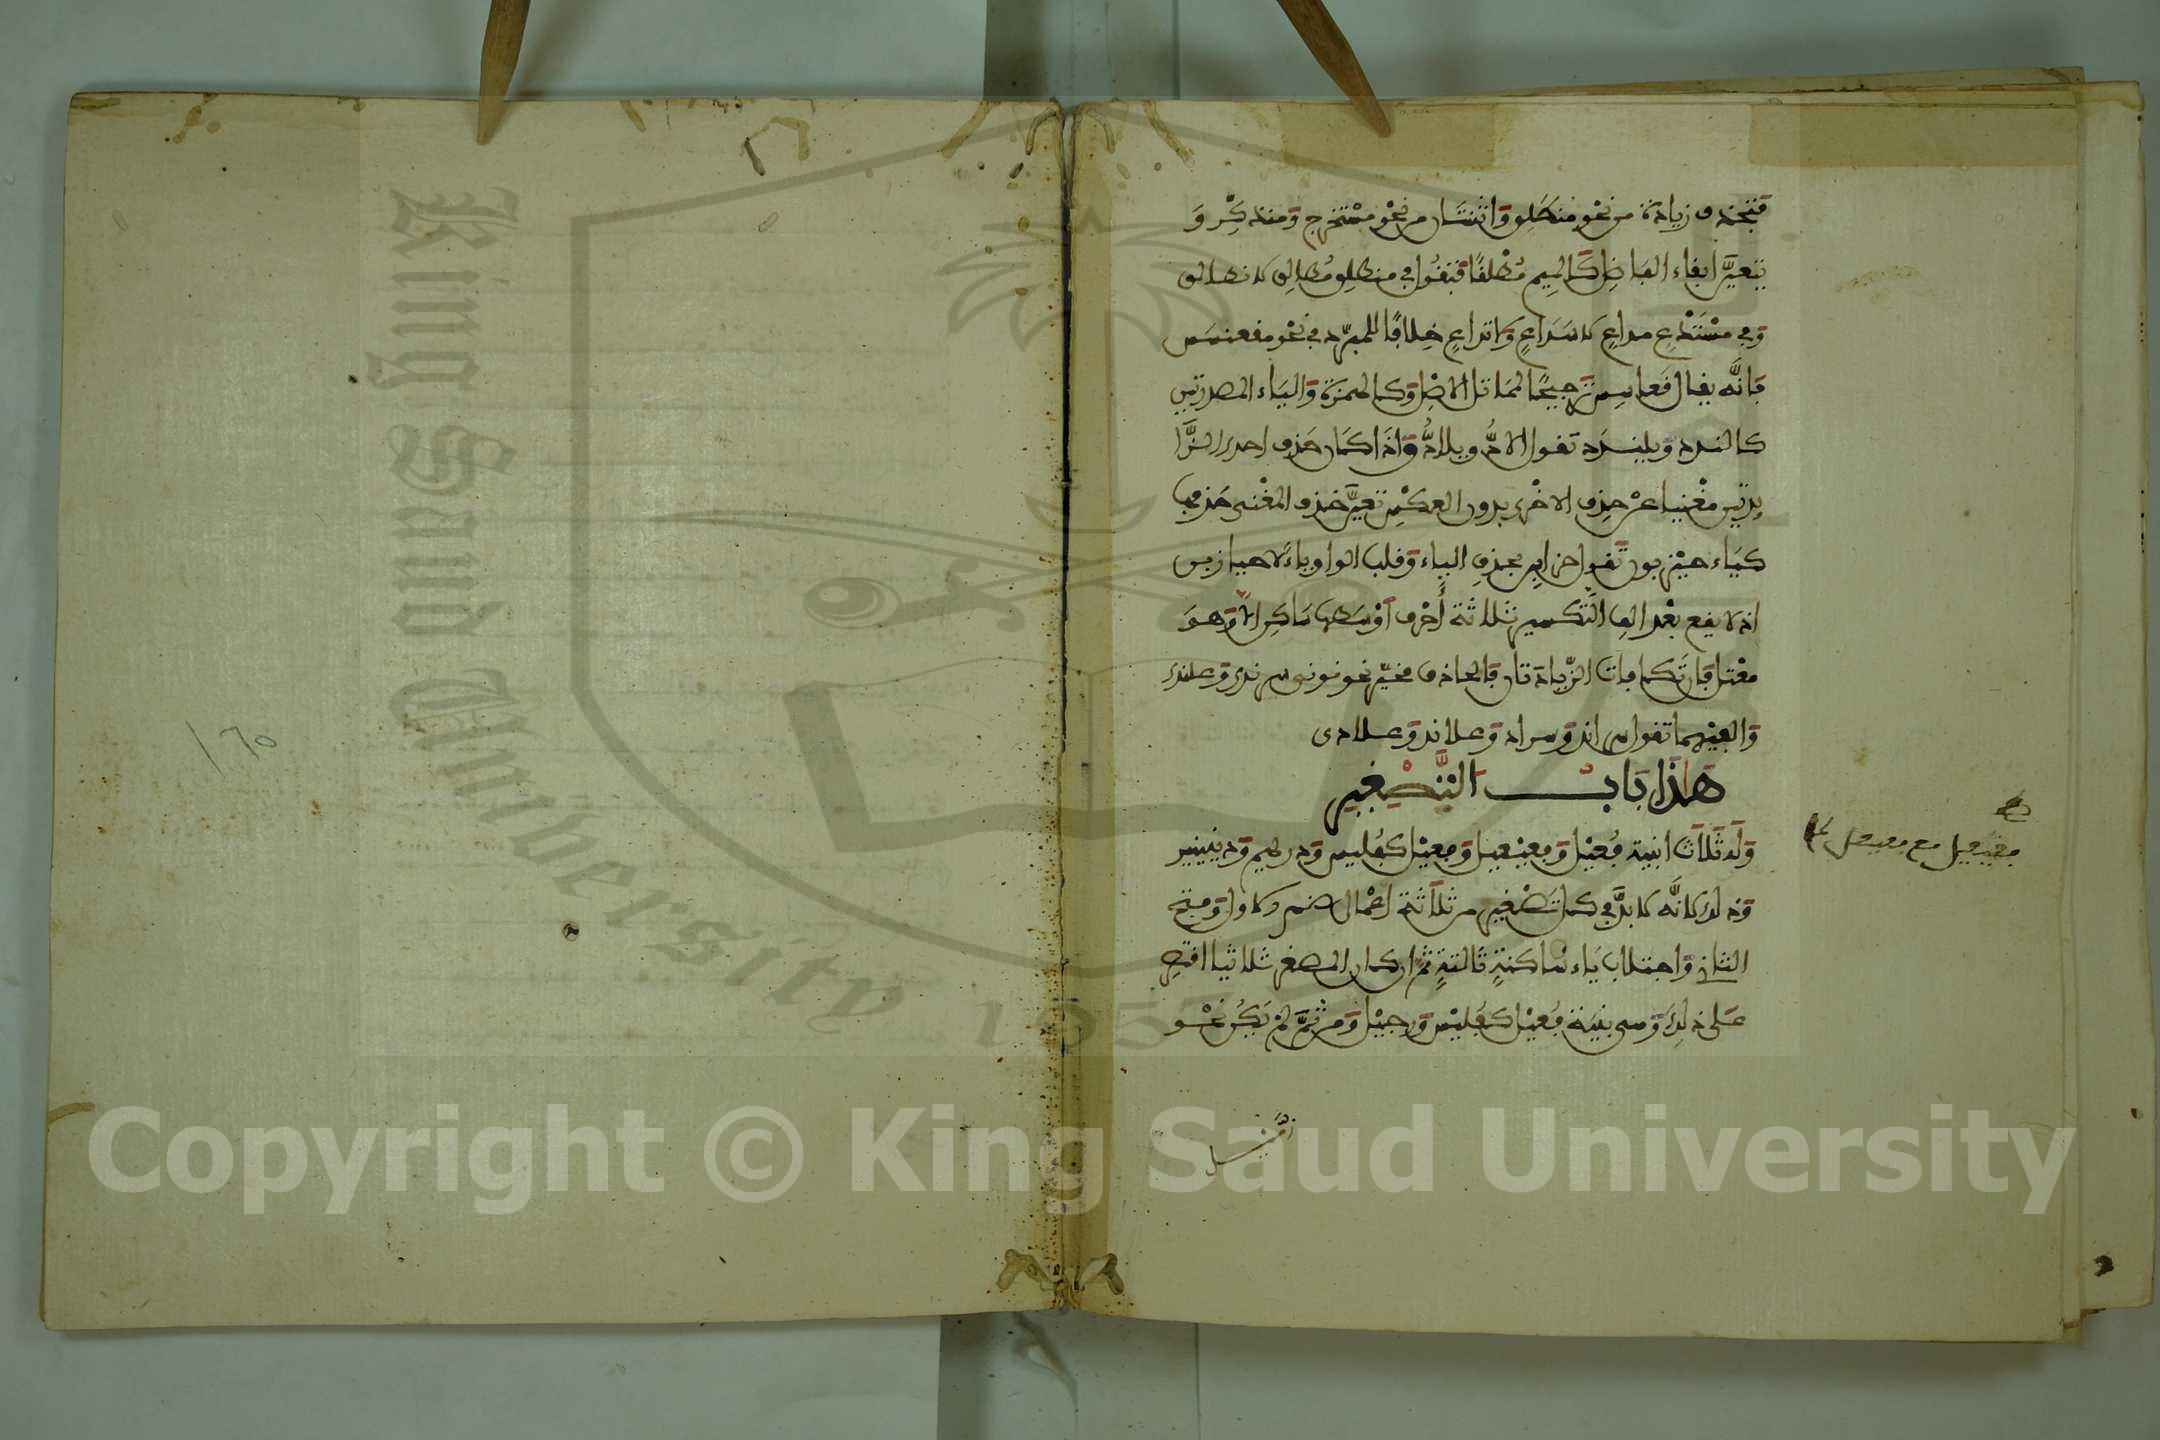 فتحذف زيادة من نحو منطلق واثنتان من نحو مستخرج ومتذكر و
يتعيَّن ابقاء الفاضل كالميم مطلقًا فتقول في منطلق مطالق لا نطالق
وفي مستدع مداع لا سداع ولا تداع خلافا للمبرد في نحو مقعنسس
فانَّه يقال قعاسس ترجيحًا لمماثل الاصل وكالهمزة والياء المصدرتين
كالندد ويلندد تقول الادُّ ويلادُّ واذا كان حذف احدى الزَّا
يدتين مغنيا عن حذف الاخرى بدون العكس تعيَّن حذف المغني حذفها
كياء حيزبون تقول حزابين بحذف الياء وقلب الواو ياءً لا حيازبن
اذ لا يقع بعد الف التَّكسير ثلاثة أحرف أوسطها ساكن الا وهو
معتل فان تكافات الزّيادتان فالحاذف مخيّر نحو نوني سرندى وعلندى
والفيهما تقول سراند وسراد وعلاند وعلادى
هَاذَا بَابُ التَّصْغِيرِ
وله ثلاث ابنية فُعيْل وفعيعيل وفعيعل كفليس ودريهم ودنينير
وذلك لانَّه لا بدَّ في كل تصغير من ثلاثة اعمال ضم الاول وفتح
الثاني واجتلاب ياء ساكنة ثالثة ثم ان كان المصغر ثلاثيا اقتصر
على ذلك وهي بنية فُعيْل كفُليس ورجيل ومن ثمَّ لم يكن نحو
فعيعيل مع فعيعل
زميل
١٦٥
King Saud University
1957
Copyright © King Saud University